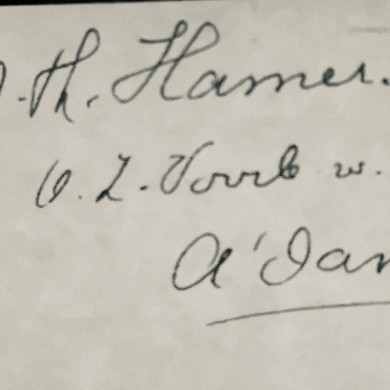 . Th. Hamer.
O. Z. Voorb w.
A'dam